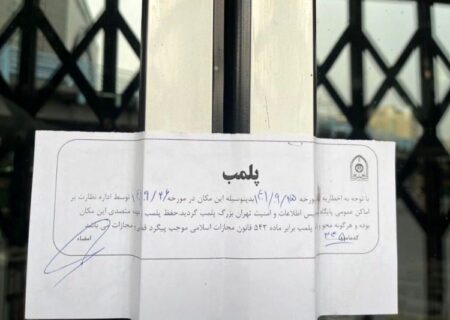 پلمب
با توجه به اخطاریه مورخه ۱۴۰۱/۹/۲۵ بدینوسیله این مکان در مورخه ۱۴۰۱/۹/۲۶ توسط اداره نظارت بر
اماکن عمومی پایگاه پلیس اطلاعات و امنیت تهران بزرگ پلمب گردید. حفظ پلمب بعهده متصدی این مکان
بوده و هرگونه محو پلمب برابر ماده ۵۴۳ قانون مجازات اسلامی موجب پیگرد قضایی مجازات می باشد
کدشناسایی امضاء
۳۴۵